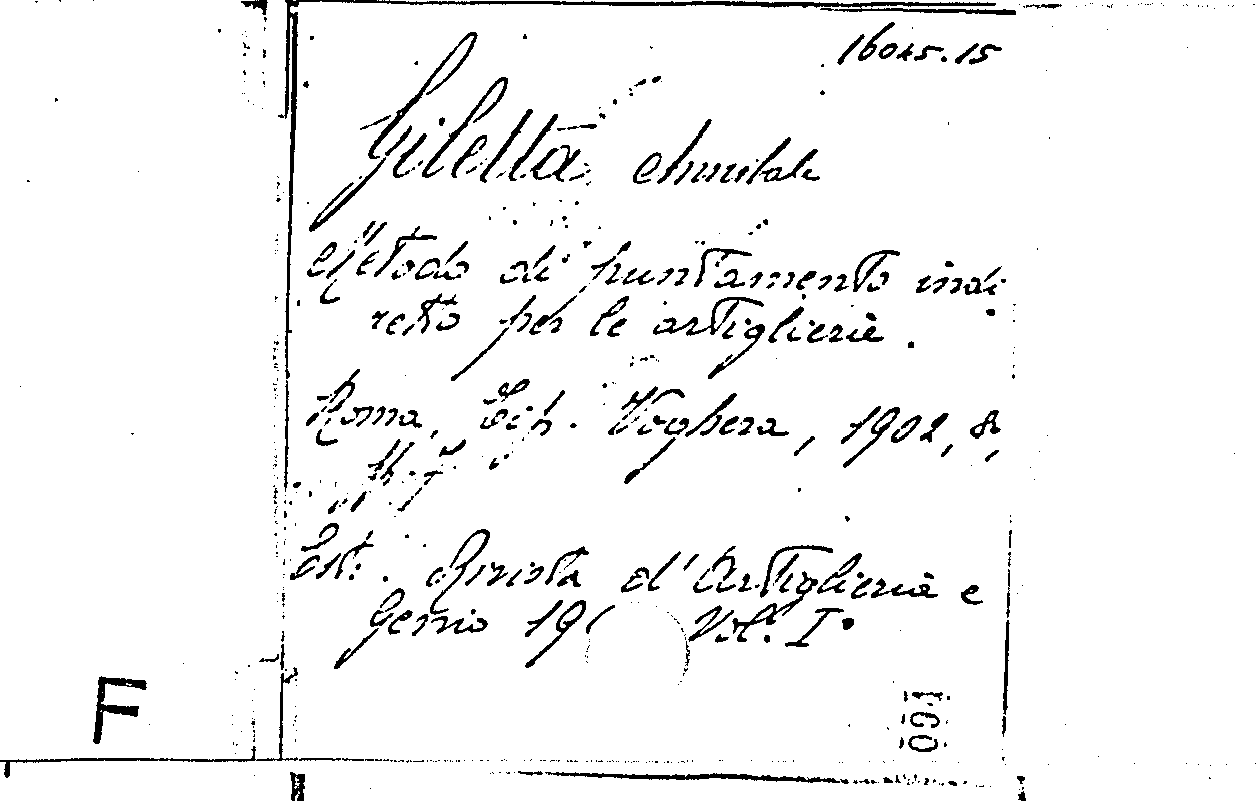 16045.15
Giletta Annibale
Metodo di puntamento indi
retto per le artiglierie.
Roma, Tip. Voghera, 1902, 8,
pp. 7
Est. Rivista d'Artiglieria e
Genio 19 Vol. I°
F